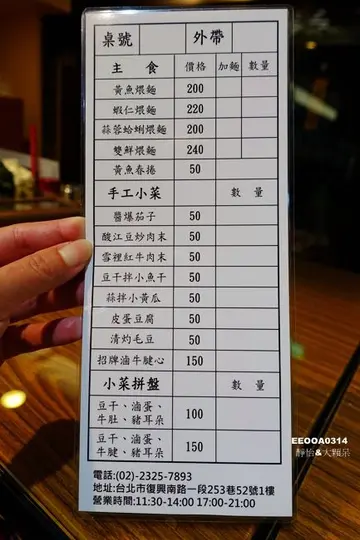 桌號 外帶
主食 價格 加麵 數量
黃魚煨麵 200
蝦仁煨麵 220
蒜蓉蛤蜊煨麵 200
雙鮮煨麵 240
黃魚春捲 50
手工小菜 數量
醬爆茄子 50
酸江豆炒肉末 50
雪裡紅牛肉末 50
豆干拌小魚干 50
蒜拌小黃瓜 50
皮蛋豆腐 50
清灼毛豆 50
招牌滷牛腱心 150
小菜拼盤 數量
豆干、滷蛋、
牛肚、豬耳朵 100
豆干、滷蛋、
牛腱、豬耳朵 150
電話:(02)-2325-7893
地址:台北市復興南路一段253巷52號1樓
營業時間:11:30-14:00 17:00-21:00
EEOOA0314
靜怡&大顆呆